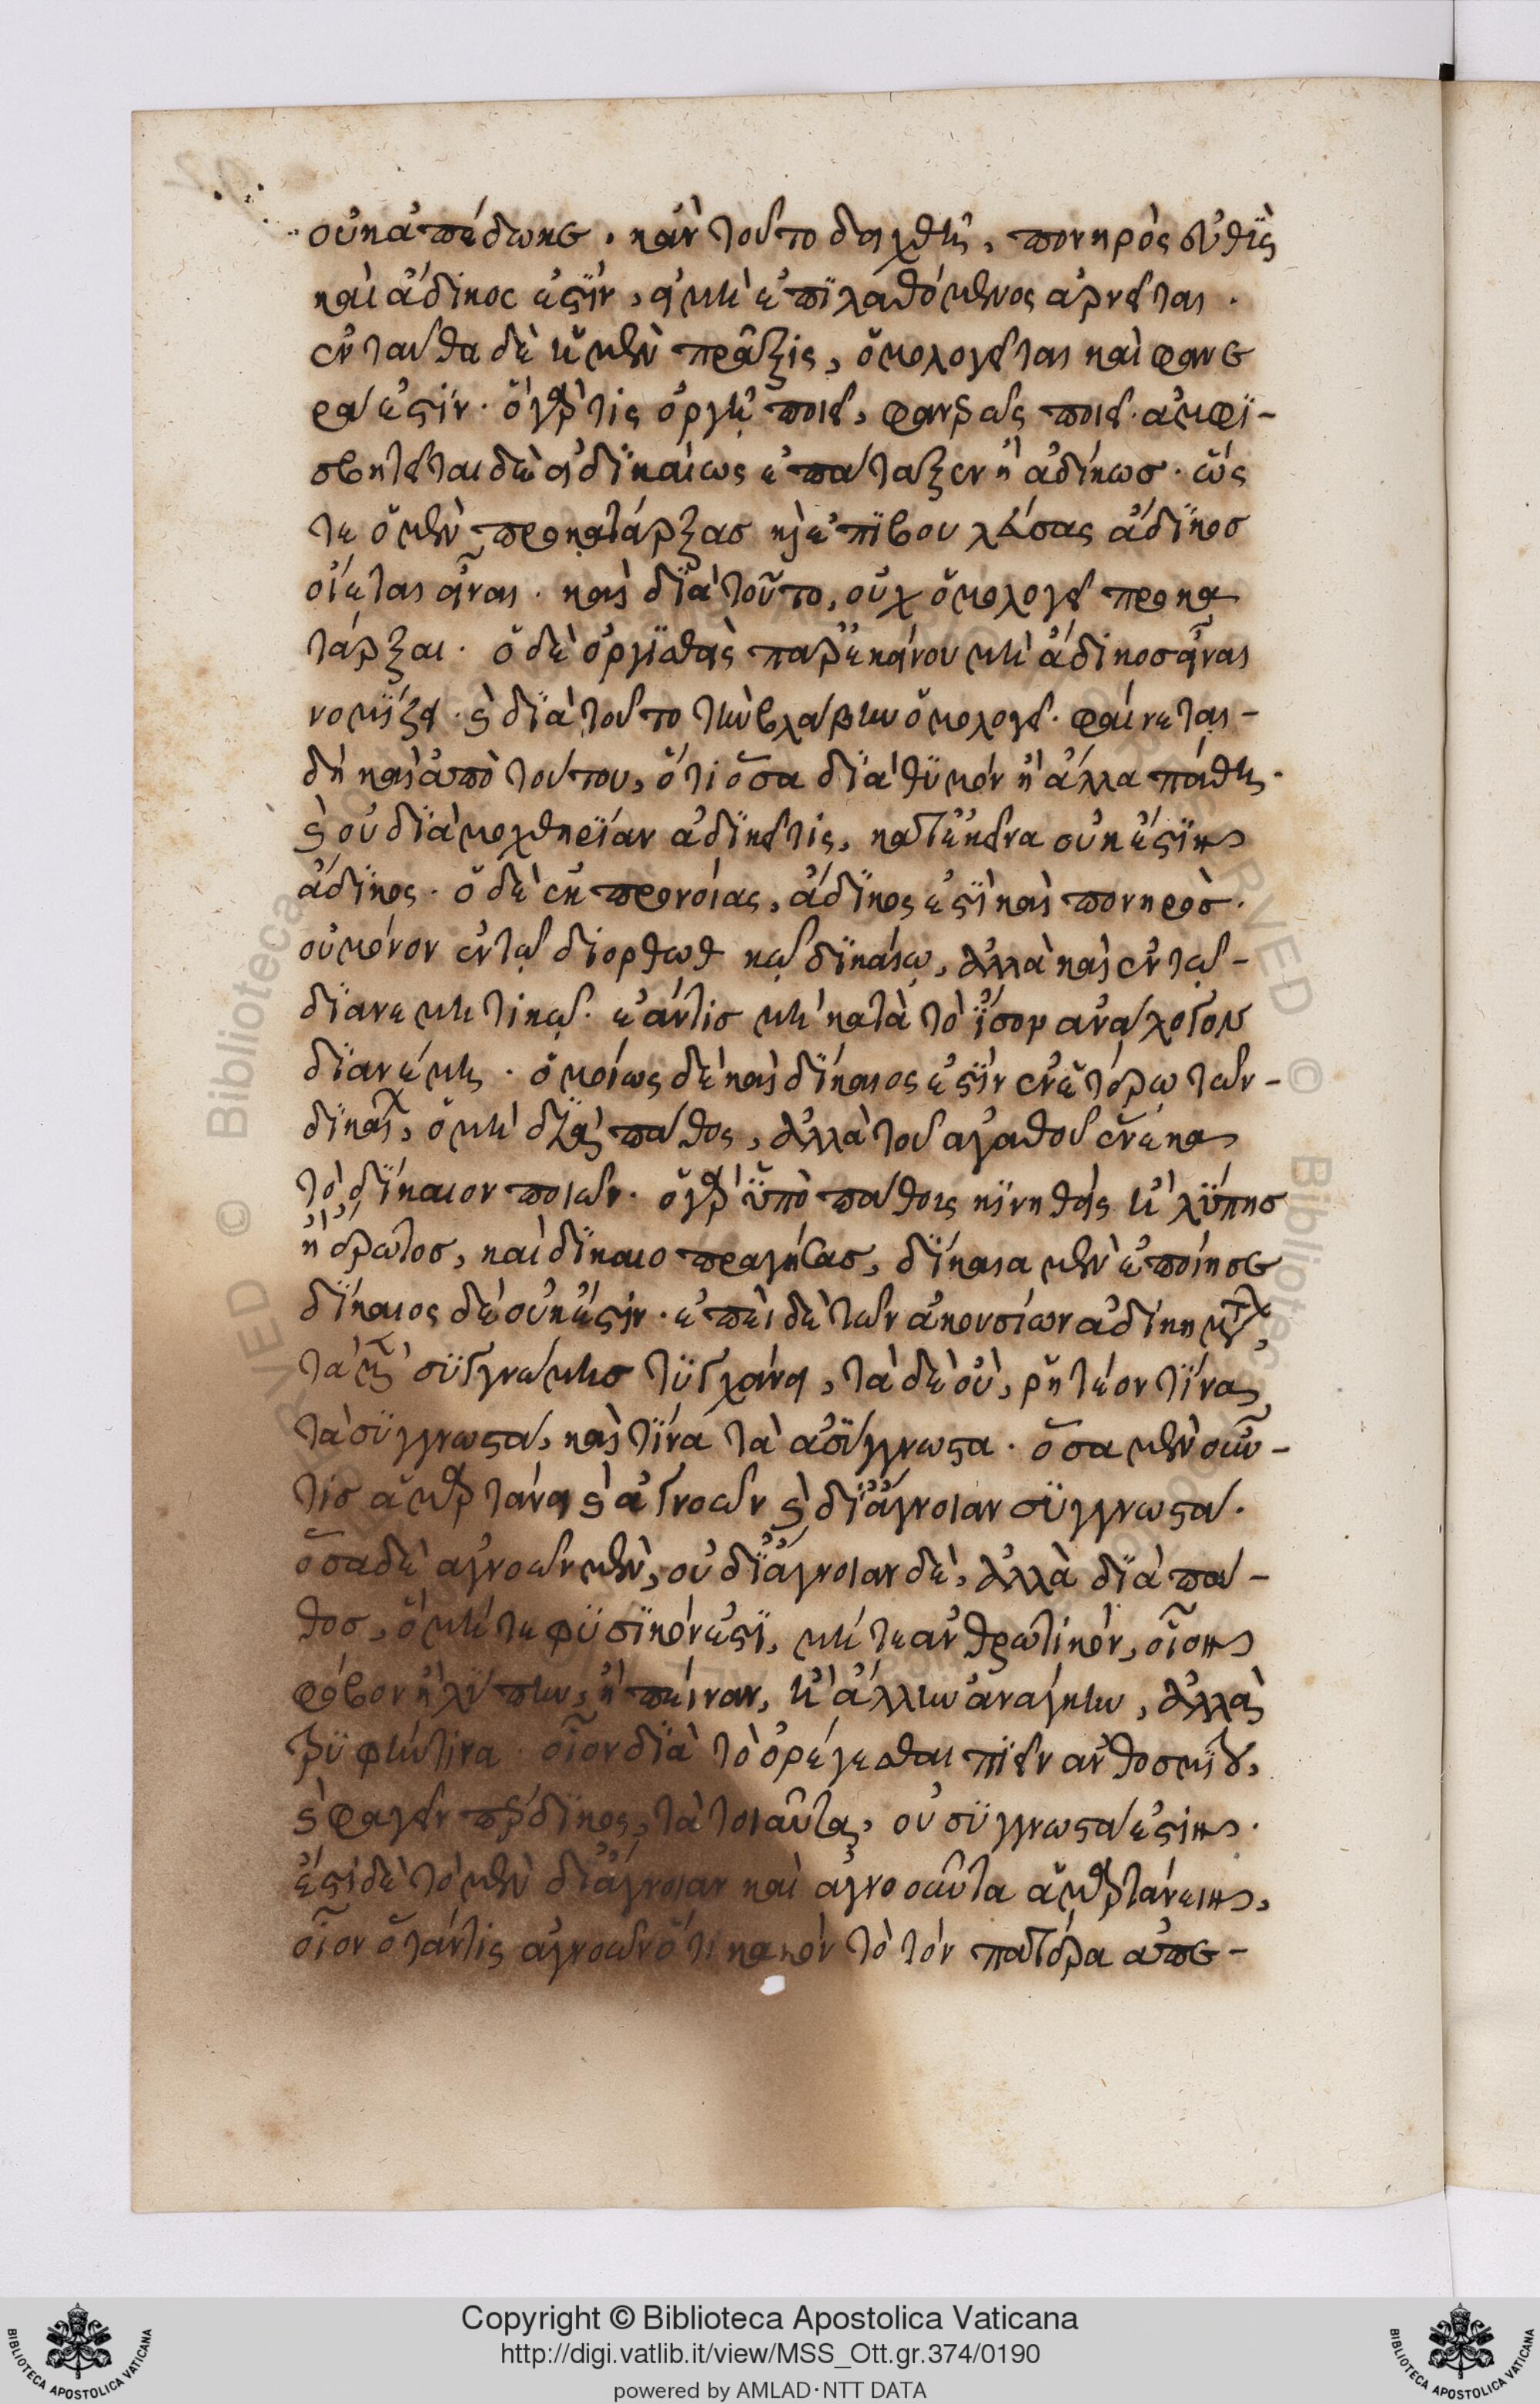 οὐκ ἀπέδωκε. κἂν τοῦτο δειχθῇ, πονηρὸς εὐθὺς
καὶ ἄδικος ἐστὶν, εἰ μὴ ἐπιλαθόμενος ἀρνεῖται.
ἐνταῦθα δὲ ἡ μὲν πρᾶξις, ὁμολογεῖται καὶ φανε
ρά ἐστιν. ὁ γάρ τις ὀργῇ ποιεῖ, φανερῶς ποιεῖ. ἀμφι-
σβητεῖται δὲ εἰ δικαίως ἐπάταξεν ἢ ἀδίκως. ὥς
τε ὁ μὲν προκατάρξας καὶ ἐπιβουλεύσας ἄδικος
οἴεται εἶναι. καὶ διὰ τοῦτο, οὐχ ὁμολογεῖ προκα
τάρξαι. ὁ δὲ ὀργισθεὶς παρ' ἐκείνου μὴ ἄδικος εἶναι
νομίζει. καὶ διὰ τοῦτο τὴν βλάβην ὁμολογεῖ. φαίνεται-
δὴ καὶ ἀπὸ τούτου, ὅτι ὅσα διὰ θυμόν ἢ ἄλλα πάθη.
καὶ οὐ διὰ μοχθηρίαν ἀδικεῖ τις, κατ' ἐκεῖνα οὐκ ἔστιν
ἄδικος. ὁ δὲ ἐκ προνοίας, ἄδικος ἐστὶ καὶ πονηρὸς.
οὐ μόνον ἐν τῷ διορθωτικῷ δικαίῳ, ἀλλὰ καὶ ἐν τῷ-
διανεμητικῷ. ἐάν τις μὴ κατὰ τὸ ἴσον ἀνάλογον
διανέμῃ. ὁμοίως δὲ καὶ δίκαιος ἐστὶν ἐν ἑκατέρῳ τῶν-
δικαίων, ὁ μὴ διὰ πάθος, ἀλλὰ τοῦ ἀγαθοῦ ἕνεκα
τὸ δίκαιον ποιῶν. ὁ γὰρ ὑπὸ πάθους κινηθείς ἢ λύπης
ἢ ἔρωτος, καὶ δικαιοπραγήσας, δίκαια μὲν ἐποίησε
δίκαιος δὲ οὐκ ἔστιν. ἐπεὶ δὲ τῶν ἀκουσίων ἀδικημάτων,
τὰ μὲν συγγνώμης τυγχάνει, τὰ δὲ οὐ, ῥητέον τίνα
τὰ σύγγνωστα, καὶ τίνα τὰ ἀσύγγνωστα. ὅσα μὲν οὖν-
τις ἁμαρτάνει καὶ ἀγνοῶν καὶ δι' ἄγνοιαν σύγγνωστα.
ὅσα δὲ ἀγνοῶν μὲν, οὐ δι' ἄγνοιαν δὲ, ἀλλὰ διὰ πά-
θος, ὃ μήτε φυσικόν ἐστι, μήτε ἀνθρώπινον, οἷον
φόβον ἢ λύπην, ἢ πεῖναν, ἢ ἄλλην ἀνάγκην, ἀλλὰ
τρυφήν τινα. οἷον διὰ τὸ ὀρέγεσθαι πιεῖν ἀνθοσμίου,
καὶ φαγεῖν πέρδικος, τὰ τοιαῦτα, οὐ σύγγνωστά ἐστιν.
ἔστι δὲ τὸ μὲν δι' ἄγνοιαν καὶ ἀγνοοῦντα ἁμαρτάνειν,
οἷον ὅταν τις ἀγνοῶν ὅτι κακόν τὸ τόν πατέρα ἀπο-
Copyright © Biblioteca Apostolica Vaticana
http://digi.vatlib.it/view/MSS_Ott.gr.374/0190
powered by AMLAD·NTT DATA
BIBLIOTECA APOSTOLICA VATICANA
BIBLIOTECA APOSTOLICA VATICANA